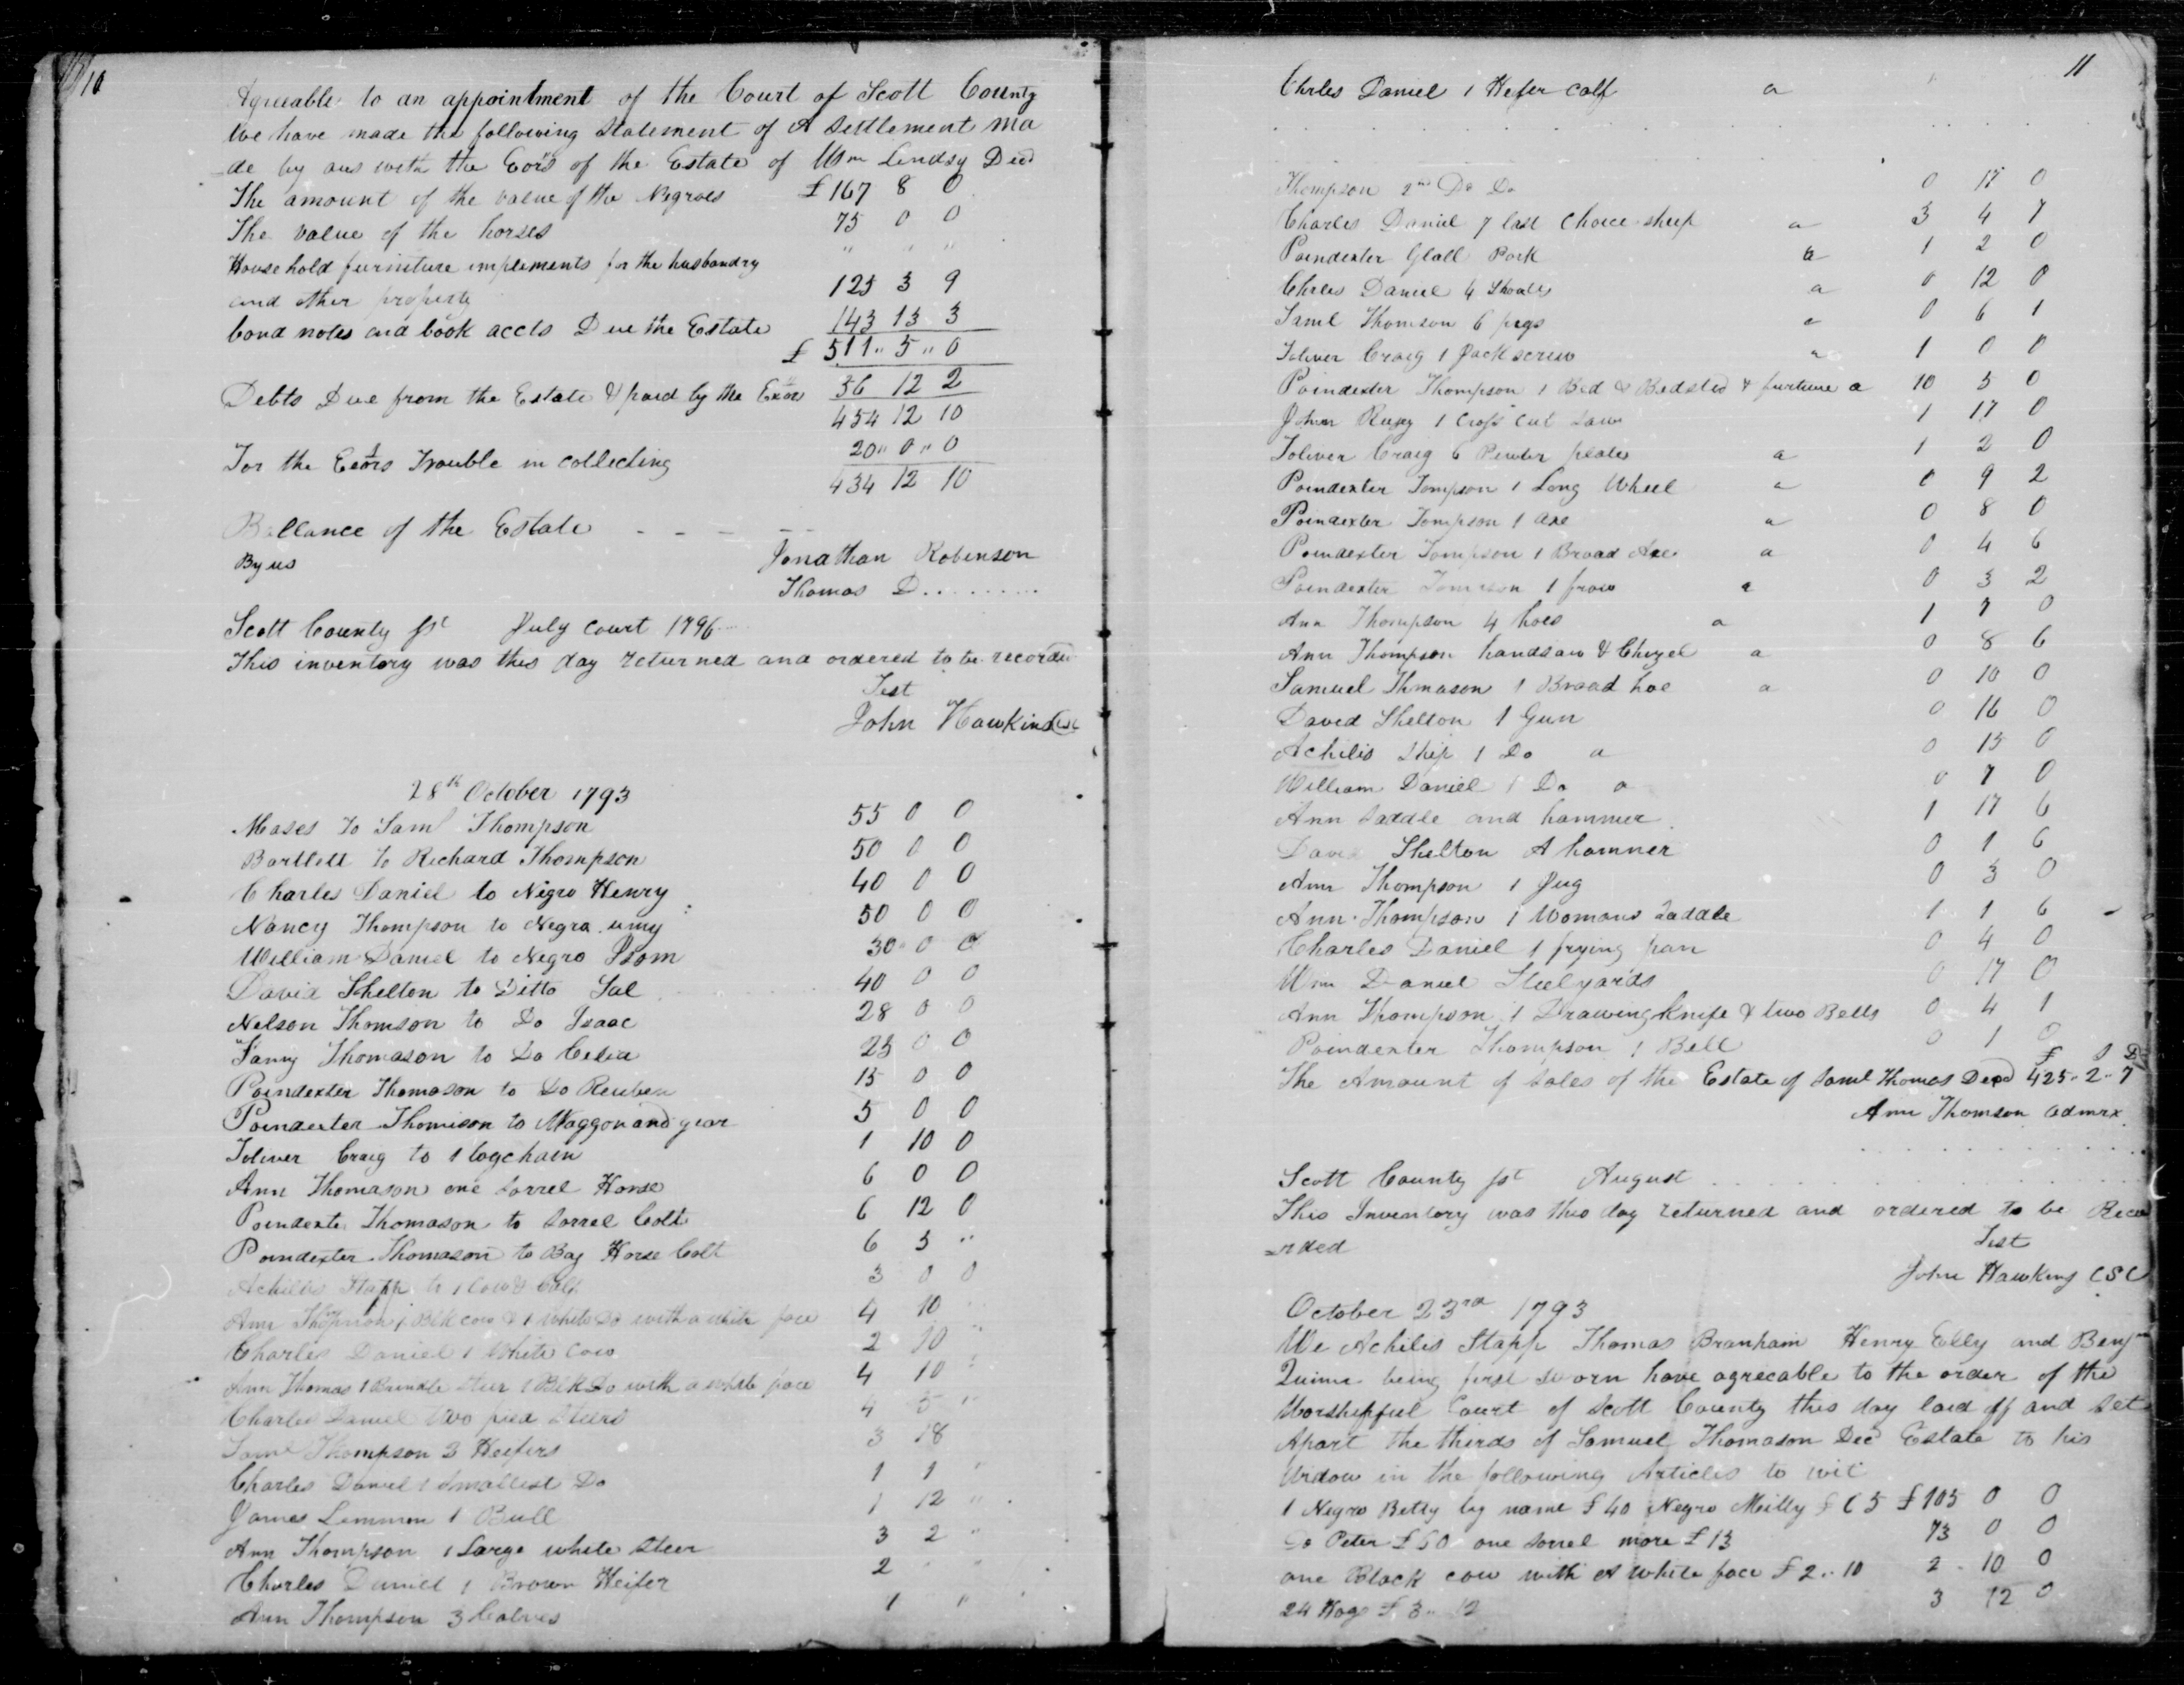 10
Agreeable to an appointment of the Court of Scott County
We have made the following Statement of A Settlement ma
de by aus with the Eors of the Estate of Wm Lindsy Decd
The amount of the value of the Negroes £ 167 8 0
The value of the horses 75 0 0
Household furniture impliments for the husbandry " " "
and other property 125 3 9
bond notes and book accts Due the Estate 143 13 3
£ 511 " 5 " 0
Debts Due from the Estate & paid by the Exor 56 12 2
454 12 10
For the Exors Trouble in collecting 20 " 0 " 0
434 12 10
Ballance of the Estate - - - - -
By us Jonathan Robinson
Thomas D. . . . . . . . .
Scott County sst July court 1796
This inventory was this day returned and ordered to be recorded
Test
John Hawkins CSC
28th October 1793
Mases To Saml Thompson 55 0 0
Bartlett To Richard Thompson 50 0 0
Charles Daniel to Nigro Henry 40 0 0
Nancy Thompson to Negra umy 50 0 0
William Daniel to Negro 30 " 0 0
David Shelton to Ditto Sal 40 0 0
Nelson Thomson to Do Isaac 28 0 0
Fanny Thomason to Do Celia 25 0 0
Poindexter Thomason to Do Reuben 15 0 0
Poindexter Thomison to Waggon and gear 5 0 0
Toliver Craig to 1 logchain 1 10 0
Ann Thomason one Sorrel Horse 6 0 0
Poindexte Thomason to Sorrel Colt 6 12 0
Poindexter Thomason to Bay Horse Colt 6 5 "
Achilles Stapp to 1 Cow & Calf 3 0 0
Ann Thompson 1 Blk cow & 1 white Do with a white face 4 10 "
Charles Daniel 1 White Cow 2 10 "
Ann Thomas 1 Brindle Steer 1 Blk Do with a white face 4 10 "
Charles Daniel two pied Steers 4 5 "
Saml Thompson 3 Heifers 3 18
Charles Daniel 1 Smallest Do 1 1 "
James Lemmon 1 Bull 1 12 "
Ann Thompson 1 Large white Steer 3 2 "
Charles Daniel 1 Brown Heifer 2 " "
Ann Thompson 3 Calves 1 "
11
Chrles Daniel 1 Hefer calf a "
Thompson 2nd Do Do 0 17 0
Charles Daniel 7 last Choice sheep a 3 4 7
Poindexter Glall Pork a 1 2 0
Chrles Daniel 4 Shoats a 0 12 0
Saml Thomson 6 pegs a 0 6 1
Toliver Craig 1 Jack screw a 1 0 0
Poindexter Thompson 1 Bed & Bedsted & furtiure a 10 5 0
John 1 Cross cut Saw 1 17 0
Toliver Craig 6 Pewter plates a 1 2 0
Poindexter Tompson 1 Long Wheel a 0 9 2
Poindexter Tompson 1 axe a 0 8 0
Poindexter Tompson 1 Broad Axe a 0 4 6
Poindexter Tomson 1 frow a 0 3 2
Ann Thompson 4 hoes a 1 7 0
Ann Thompson handsaw & Chizel a 0 8 6
Samuel Thmason 1 Broad hoe a 0 10 0
David Shelton 1 Gun 0 16 0
Achilis Ship 1 Do a 0 15 0
William Daniel 1 Do a 0 7 0
Ann Saddle and hammer 1 17 6
David Shelton A hamner 0 1 6
Ann Thompson 1 Jug 0 3 0
Ann Thompson 1 Womans Saddle 1 1 6
Charles Daniel 1 frying pan 0 4 0
Wm Daniel Steelyards 0 17 0
Ann Thompson 1 Drawing Knife & two Bells 0 4 1
Poindexter Thompson 1 Bell 0 1 0
£ S D
The Amount of Sales of the Estate of Saml Thomas Decd 425 - 2 - 7
Ann Thomson admrx
Scott County sst August
This Inventory was this day returned and ordered to be Reco
rded
Test
John Hawkins CSC
October 23rd 1793
We Achiles Stapp Thomas Branham Henry Elly and Benjm
Quinn being first Sworn have agrecable to the order of the
Worshipfiul Court of Scott County this day laid off and Set
Apart the thirds of Samuel Thomason Decd Estate to his
Widow in the following Articles to wit
1 Negro Betty by name £ 40 Negro Milly £ 65 £ 105 0 0
Do Peter £ 60 one sorrel more £ 13 73 0 0
one Black cow with A white face £ 2 .. 10 2 - 10 0
24 Hogs £ 3 .. 12 3 12 0